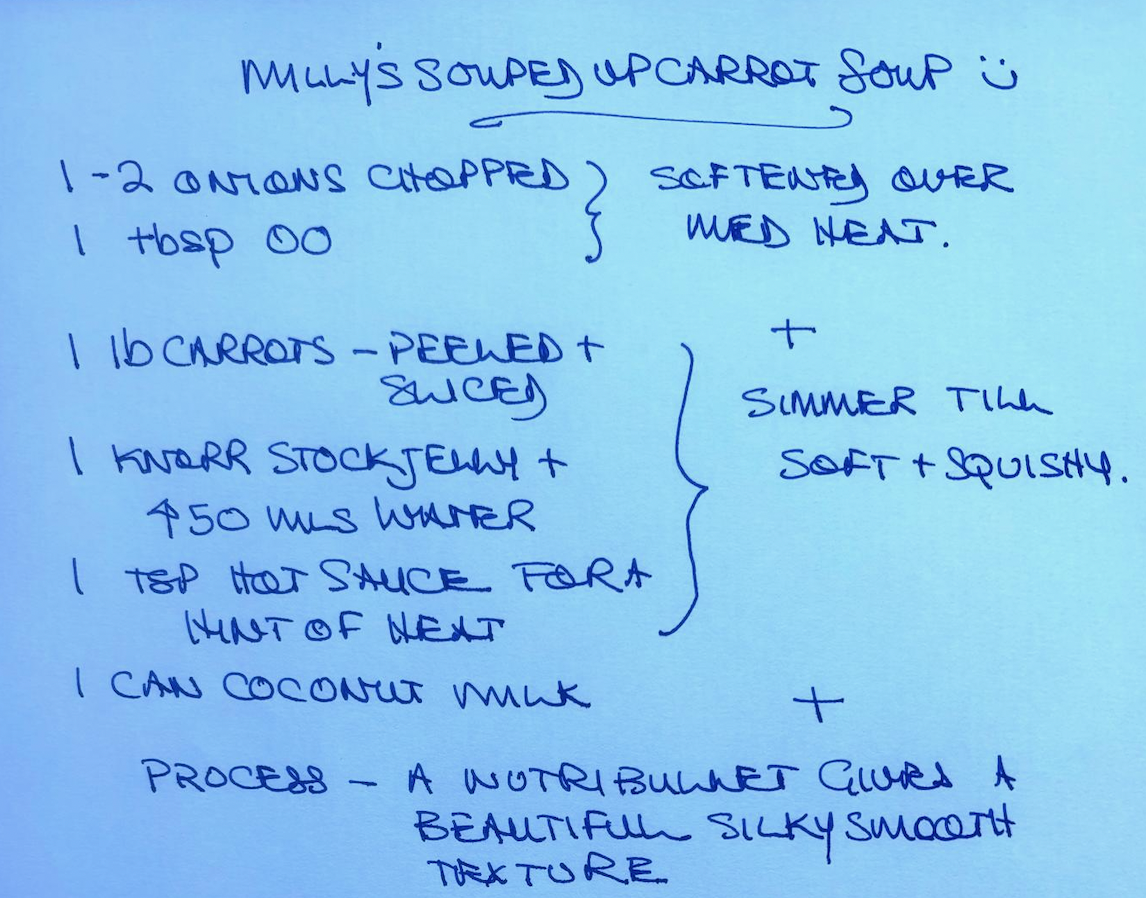 MILLY'S SOUPED UP CARROT SOUP
1-2 ONIONS CHOPPED } SOFTENED OVER
1 tbsp OO MED HEAT.
+
1 lb CARROTS - PEELED +
SLICED
SIMMER TILL
1 KNORR STOCK JELLY + SOFT + SQUISHY.
50 MLS WATER
1 TSP HOT SAUCE FOR A
HINT OF HEAT
1 CAN COCONUT MILK +
PROCESS - A NUTRIBULLET GIVES A
BEAUTIFUL SILKY SMOOTH
TEXTURE